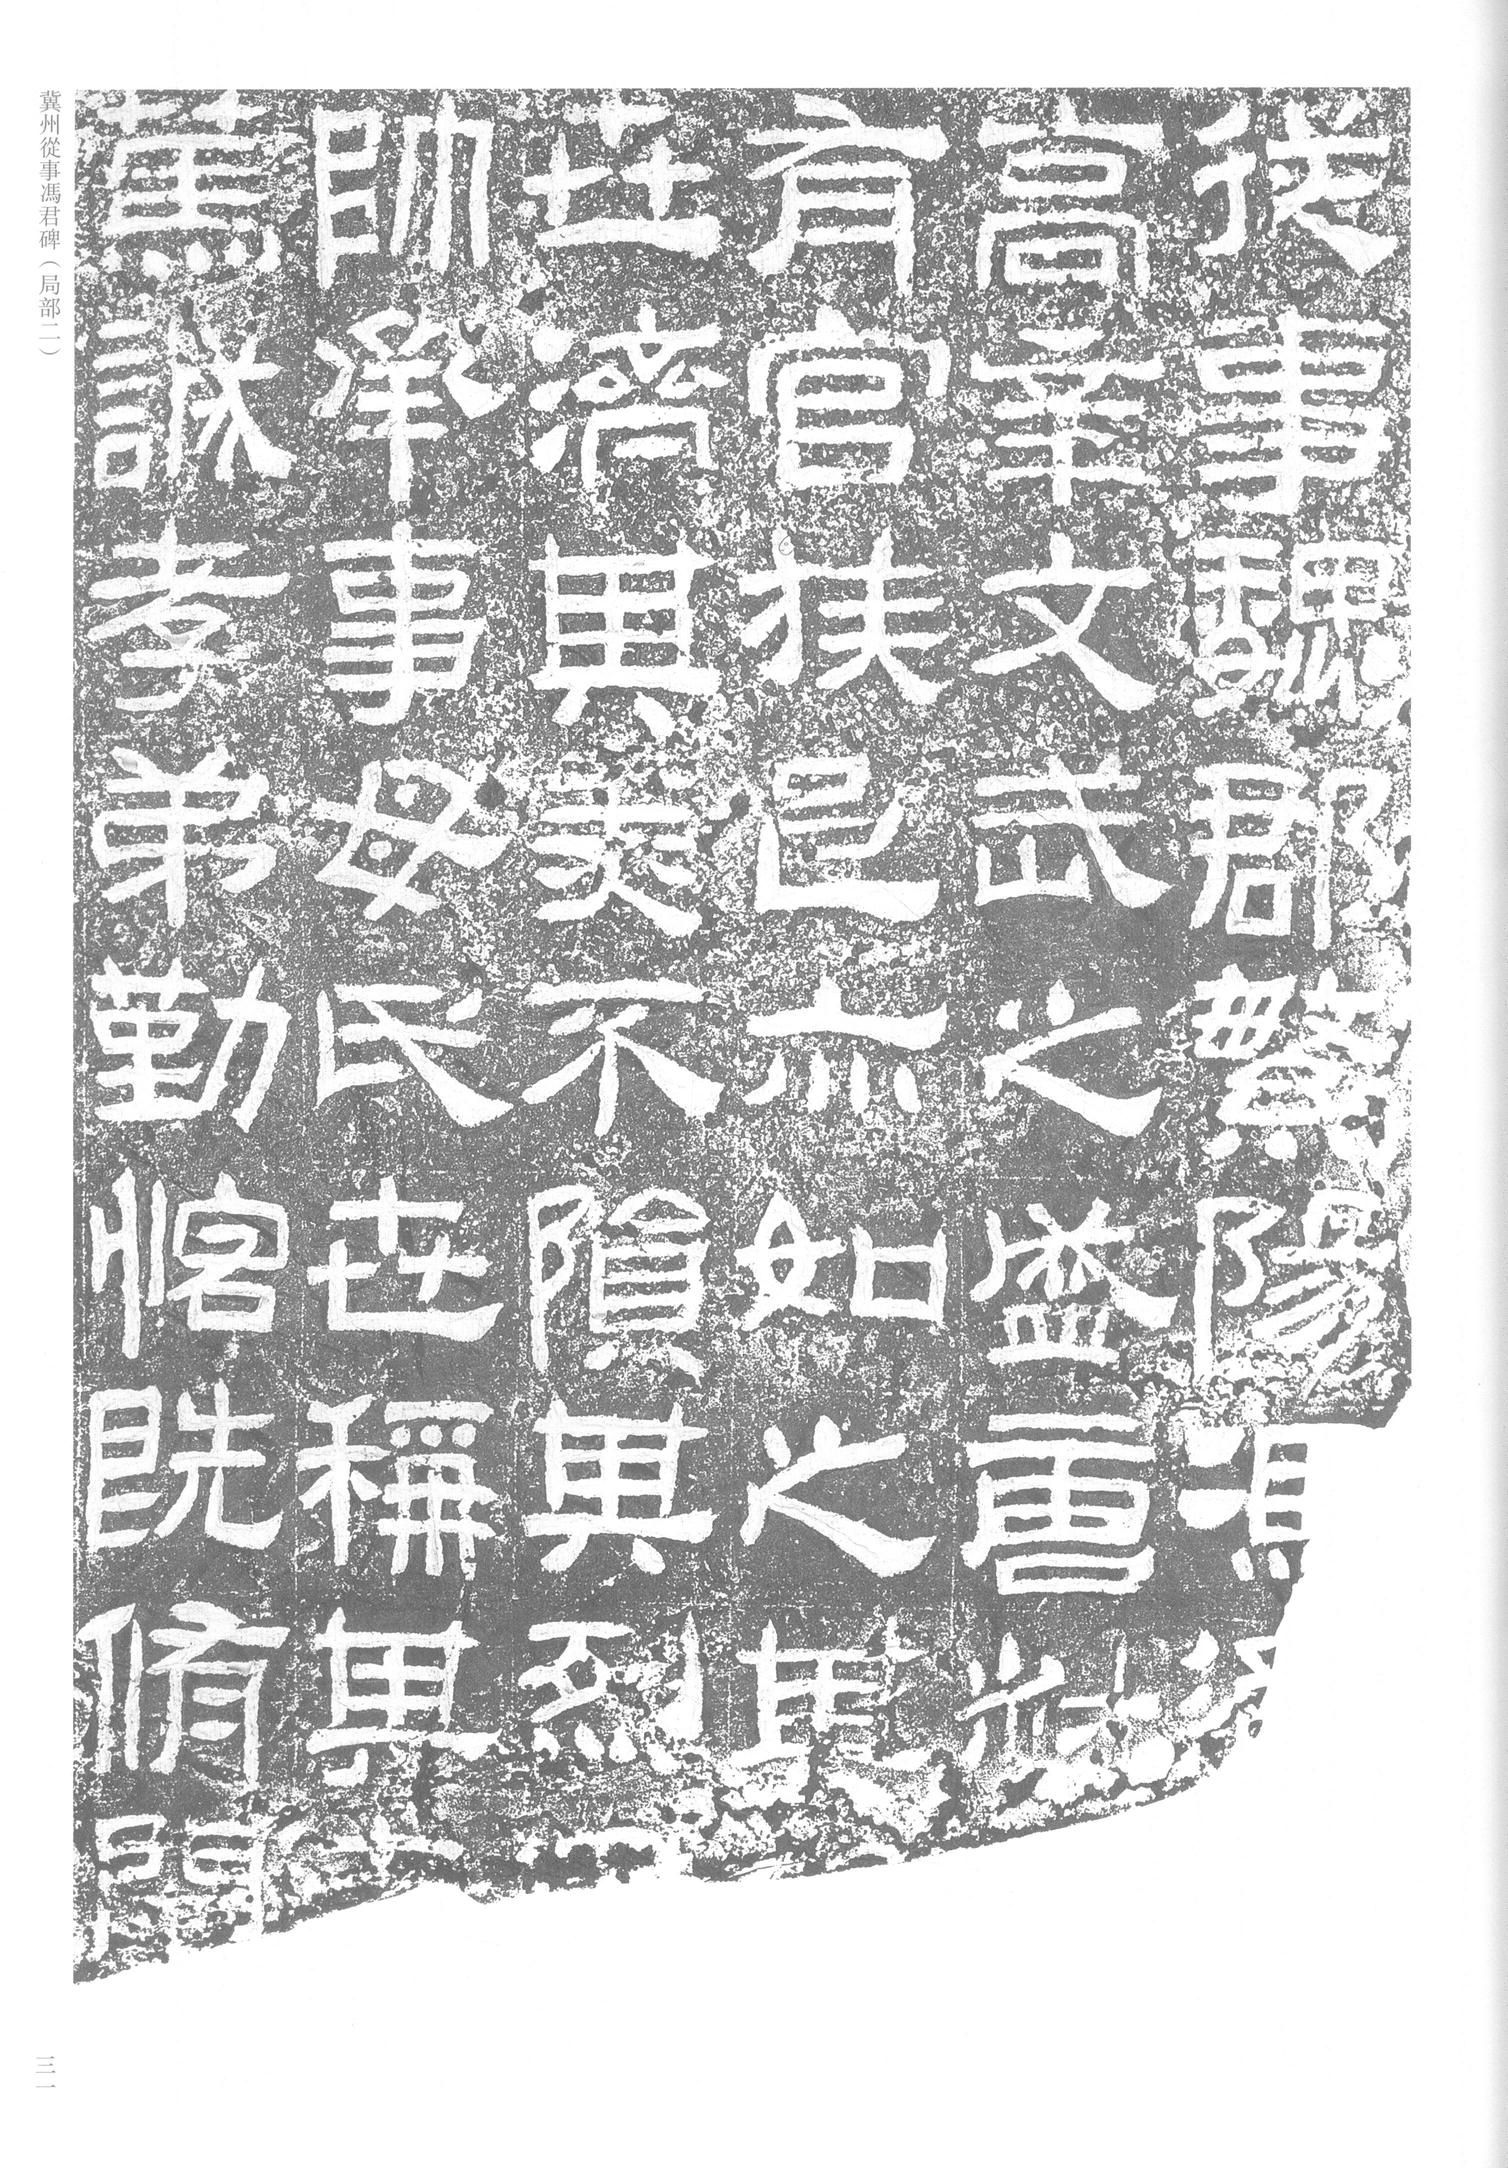 從事魏郡繁陽馮
高辛文武之盛
有官族邑亦如之其
世濟其美不隕其烈
帥承事母民世稱其
篤誠孝弟勤恪既脩
冀州從事馮君碑（局部二）
三一